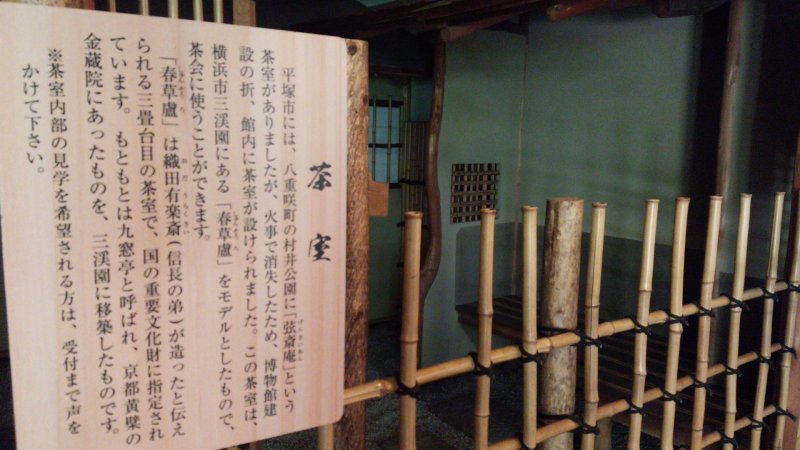 茶室
平塚市には、八重咲町の村井公園に「弦斎庵」という
げんさいあん
茶室がありましたが、火事で消失したため、博物館建
設の折、館内に茶室が設けられました。この茶室は、
横浜市三溪園にある「春草廬」をモデルとしたもので、
しゅんそうろ
茶会に使うことができます。
「春草廬」は織田有楽斎(信長の弟)が造ったと伝え
おだうらくさい
られる三畳台目の茶室で、国の重要文化財に指定され
ています。もともとは九窓亭と呼ばれ、京都黄檗の
金蔵院にあったものを、三溪園に移築したものです。
※茶室内部の見学を希望される方は、受付まで声を
かけて下さい。